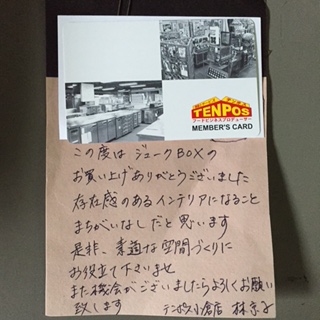 TENPOS
フードビジネスプロデューサー
MEMBER'S CARD
この度は ジュークBOXの
お買い上げありがとうございました
存在感のあるインテリアになること
まちがいなしだと思います
是非、素適な空間づくりに
お役立て下さいませ
また機会がございましたらよろしくお願い
致します
テンポス小倉店 林京子